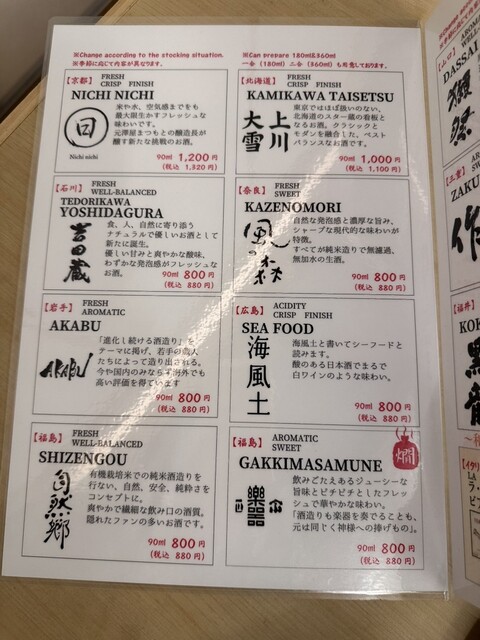 ※Change according to the stocking situation.
※季節に応じて内容が異なります。
※Can prepare 180ml&360ml
一合 (180ml) 二合 (360ml) も用意しております。
【京都】
FRESH
CRISP FINISH
NICHI NICHI
日
Nichi nichi
米や水、空気感までをも
最大限生かすフレッシュな
味わいです。
元澤屋まつもとの醸造長が
醸す新たな挑戦のお酒。
90ml 1,200円
(税込 1,320円)
【北海道】
FRESH
CRISP FINISH
KAMIKAWA TAISETSU
上川
大雪
東京ではほぼ扱いのない、
北海道のスター蔵の看板と
なるお酒。クラシックと
モダンを融合した、ベスト
バランスなお酒です。
90ml 1,000円
(税込 1,100円)
【石川】
FRESH
WELL-BALANCED
TEDORIKAWA
YOSHIDAGURA
吉田蔵
食、人、自然に寄り添う
ナチュラルで優しいお酒として
新たに誕生。
優しい甘みと爽やかな酸味、
わずかな発泡感がフレッシュな
お酒。
90ml 800円
(税込 880円)
【奈良】
FRESH
SWEET
KAZENOMORI
風の森
自然な発泡感と濃厚な旨み、
シャープな現代的な味わいが
特徴。
すべてが純米造りで無濾過、
無加水の生酒。
90ml 800円
(税込 880円)
【岩手】
FRESH
AROMATIC
AKABU
AKABU
「進化し続ける酒造り」を
テーマに掲げ、若手の蔵人
たちによって造り出される。
今や国内のみならず海外でも
高い評価を得ています
90ml 800円
(税込 880円)
【広島】
ACIDITY
CRISP FINISH
SEA FOOD
海風土
海風土と書いてシーフードと
読みます。
酸のある日本酒でまるで
白ワインのような味わい。
90ml 800円
(税込 880円)
【福島】
FRESH
WELL-BALANCED
SHIZENGOU
自然郷
有機栽培米での純米酒造りを
行ない、自然、安全、純粋さを
コンセプトに。
爽やかで繊細な飲み口の酒質。
隠れたファンの多いお酒です。
90ml 800円
(税込 880円)
【福島】
AROMATIC
SWEET
燗
GAKKIMASAMUNE
樂器
正宗
飲みごたえあるジューシーな
旨味とピチピチとしたフレッ
シュで華やかな味わい。
「酒造りも楽器を奏でることも、
元は同じく神様への捧げもの」。
90ml 800円
(税込 880円)
DASSAI
獺祭
【三重】
ZAKU
作
【福井】
KOK
黒龍
【イタリ